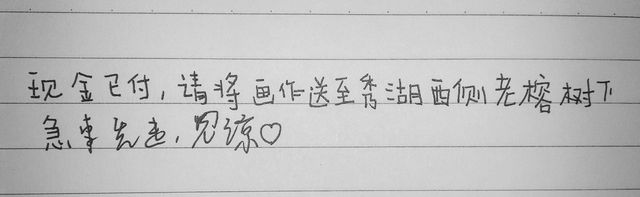 现金已付，请将画作送至秀湖西侧老榕树下
急事先走，见谅♡